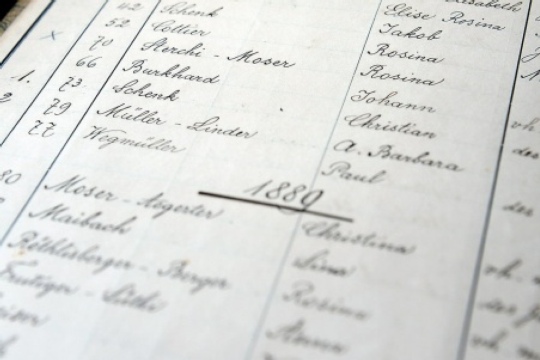 42 Schenk Elise Rosina
52 Cottier Jakob
70 Sterchi - Moser Rosina
66 Burkhard Rosina
73. Schenk Johann
79 Müller - Linder Christian
77 Wegmüller A. Barbara
Paul
1889
Moser - Aegerter Christina
Maibach Lina
Röthlisberger - Berger Rosina
Frutiger - Lüthi